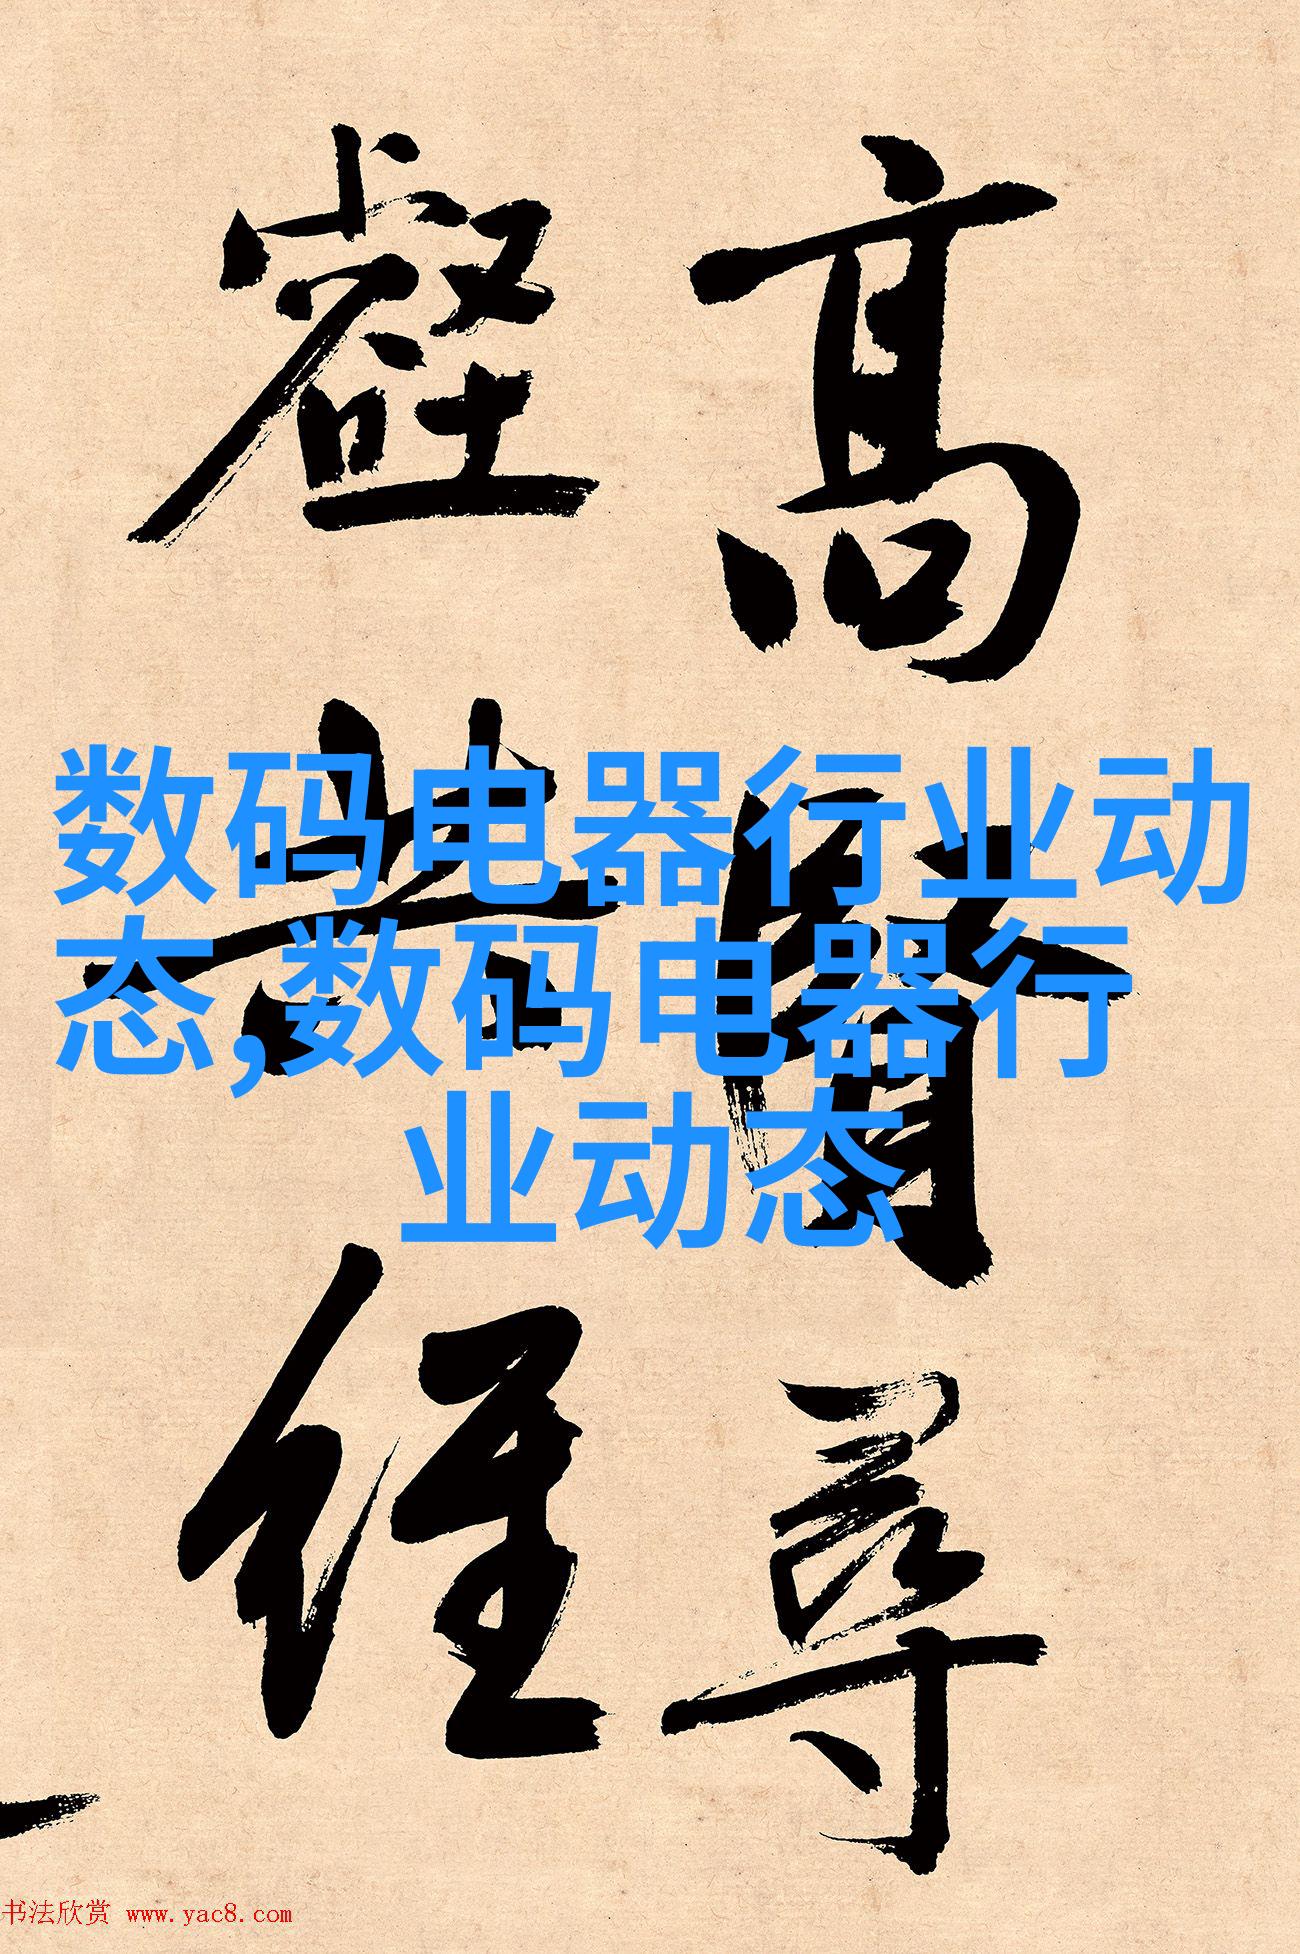 高賢尋
壑共經
数码电器行业动
态,数码电器行
业动态
书法欣赏 www.yac8.com